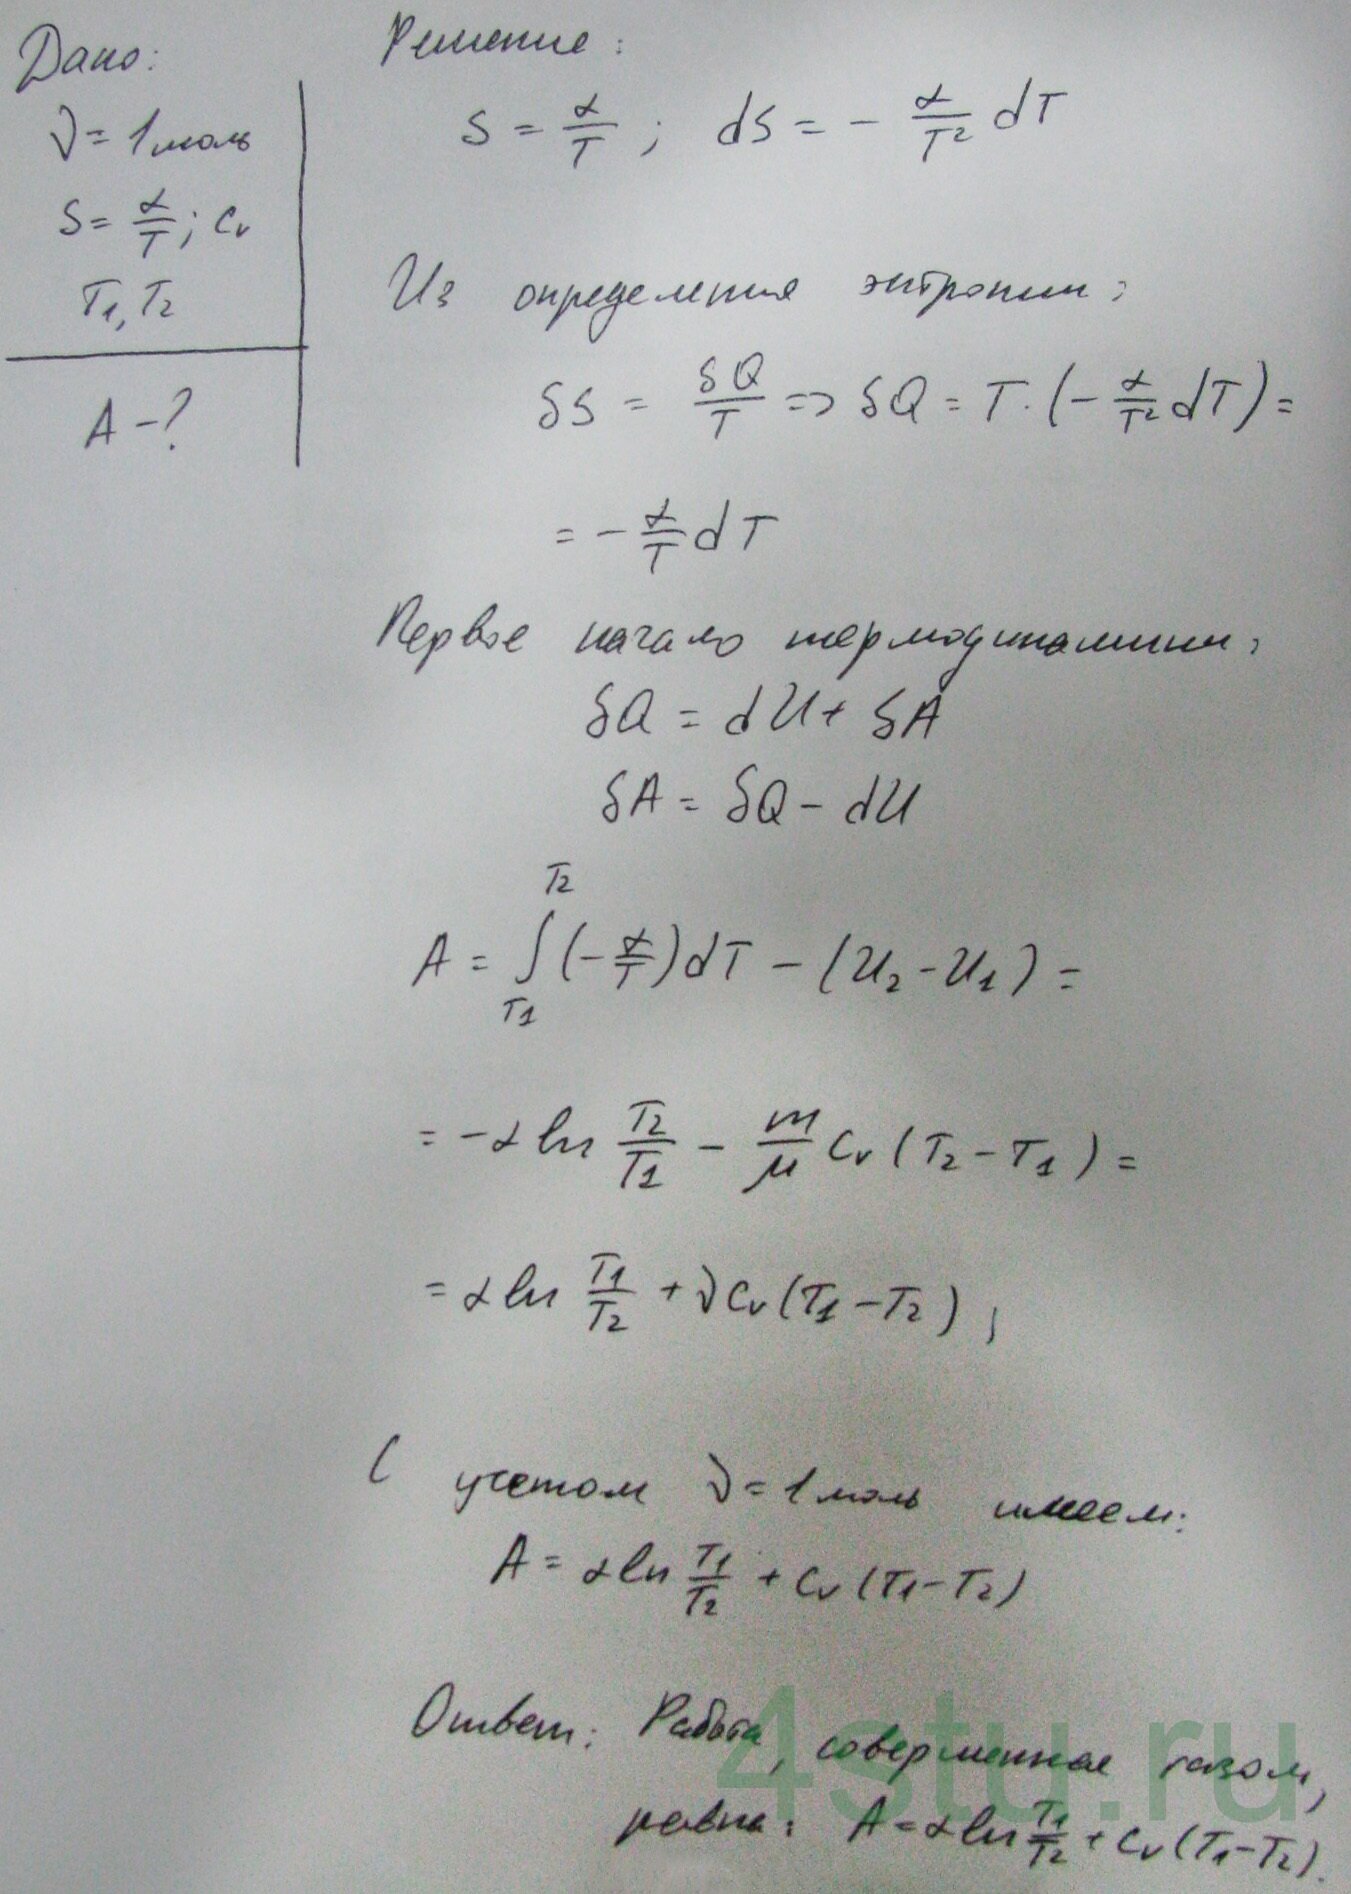 Дано:
ν = 1 моль
S = α/T ; Cv
T1, T2
A - ?
Решение:
S = α/T ; dS = - α/T² dT
Из определения энтропии:
δS = δQ/T => δQ = T · (- α/T² dT) =
= - α/T dT
Первое начало термодинамики:
δQ = dU + δA
δA = δQ - dU
A = ∫_{T1}^{T2} (- α/T) dT - (U2 - U1) =
= - α ln T2/T1 - m/μ Cv (T2 - T1) =
= α ln T1/T2 + ν Cv (T1 - T2) ;
С учетом ν = 1 моль имеем:
A = α ln T1/T2 + Cv (T1 - T2)
Ответ: Работа, совершенная газом,
равна: A = α ln T1/T2 + Cv (T1 - T2).
4stu.ru